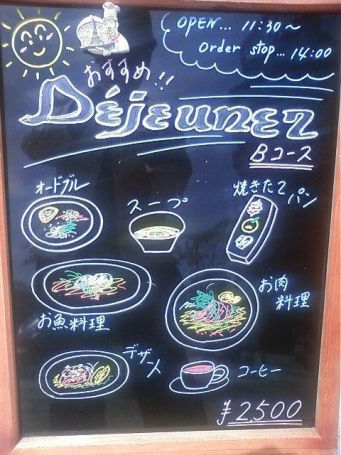 OPEN... 11:30～
Order stop... 14:00
おすすめ!!
Déjeunez
Bコース
オードブル
スープ
焼きたて
パン
お魚料理
お肉
料理
デザート
コーヒー
¥2500